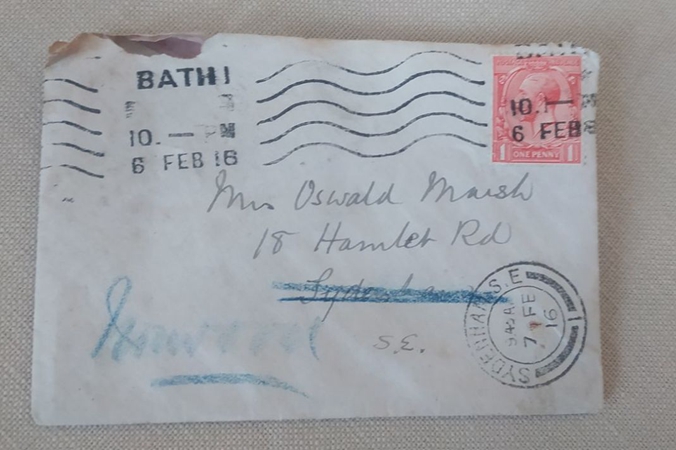 BATH
10. — PM
6 FEB 16
10. —
6 FEB
1 ONE PENNY 1
Mrs Oswald Marsh
18 Hamlet Rd
Sydenham
S.E.
SYDENHAM S.E
7 FE
16